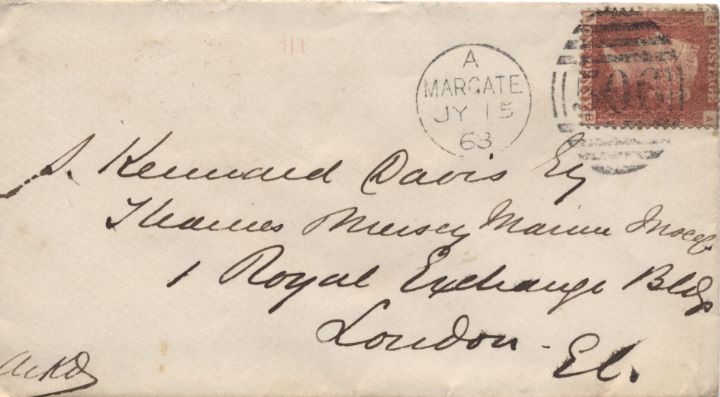 A
MARGATE
JY 15
63
POSTAGE
A
506
S. Kennard Davis Eq
Thames Mersey Marine Insce Co
1 Royal Exchange Bldgs
London E.C.
Ackd